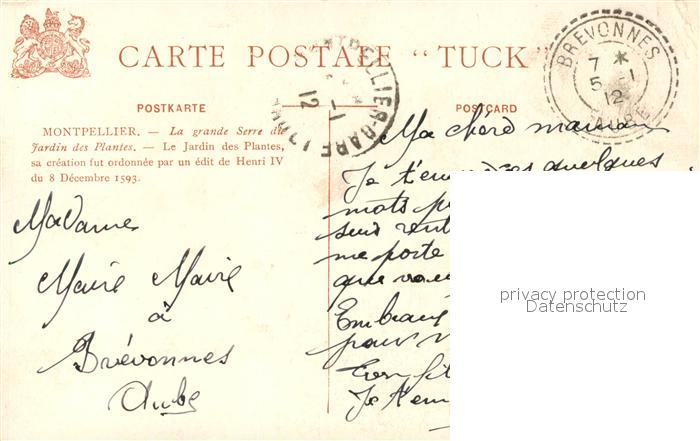 CARTE POSTALE “TUCK”
MONTPELLIER GARE
1-1
12
BREVONNES
7 *
5 -1
12
AUBE
POSTKARTE
POSTCARD
MONTPELLIER. — La grande Serre du
Jardin des Plantes. — Le Jardin des Plantes,
sa création fut ordonnée par un édit de Henri IV
du 8 Décembre 1593.
Madame
Marie
à
Brévonnes
Aube
Ma chère maman
Je quelques
mots
suis
me porte
que
pour
Je
privacy protection
Datenschutz